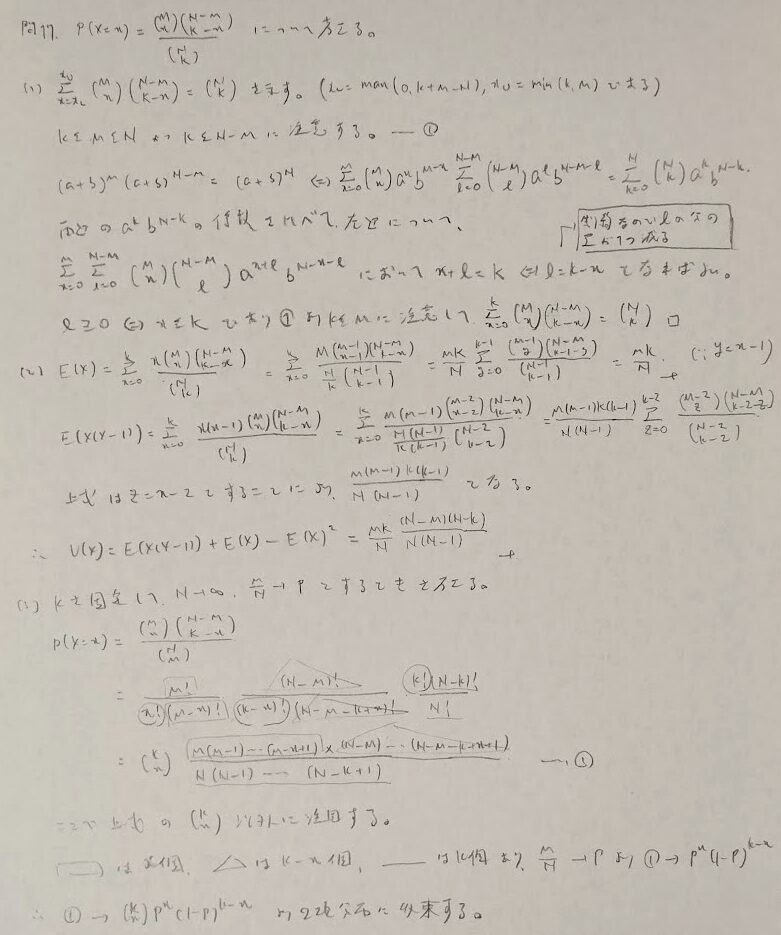 問17. P(X=x) = \frac{\binom{M}{x}\binom{N-M}{k-x}}{\binom{N}{k}} について考える。
(1) \sum_{x=x_L}^{x_U} \binom{M}{x}\binom{N-M}{k-x} = \binom{N}{k} を示す。(x_L = max(0, k+M-N), x_U = min(k, M) である)
k≦M≦N かつ k≦N-M に注意する。 — ①
(a+b)^M (a+b)^{N-M} = (a+b)^N ⇔ \sum_{x=0}^{M} \binom{M}{x} a^x b^{M-x} \sum_{l=0}^{N-M} \binom{N-M}{l} a^l b^{N-M-l} = \sum_{k=0}^{N} \binom{N}{k} a^k b^{N-k}.
両辺の a^k b^{N-k} の係数を比べて、左辺について、
制約なので l の分の Σが1つ減る
\sum_{x=0}^{M} \sum_{l=0}^{N-M} \binom{M}{x}\binom{N-M}{l} a^{x+l} b^{N-x-l} において x+l=k ⇔ l=k-x となればよい。
l≧0 ⇔ x≦k であり ① より k≦M に注意して、 \sum_{x=0}^{k} \binom{M}{x}\binom{N-M}{k-x} = \binom{N}{k} □
(2) E(X) = \sum_{x=0}^{k} \frac{x\binom{M}{x}\binom{N-M}{k-x}}{\binom{N}{k}} = \sum_{x=0}^{k} \frac{M\binom{M-1}{x-1}\binom{N-M}{k-x}}{\frac{N}{k}\binom{N-1}{k-1}} = \frac{MK}{N} \sum_{y=0}^{k-1} \frac{\binom{M-1}{y}\binom{N-M}{k-1-y}}{\binom{N-1}{k-1}} = \frac{MK}{N} (∵ y=x-1)
E(X(X-1)) = \sum_{x=0}^{k} \frac{x(x-1)\binom{M}{x}\binom{N-M}{k-x}}{\binom{N}{k}} = \sum_{x=0}^{k} \frac{M(M-1)\binom{M-2}{x-2}\binom{N-M}{k-x}}{\frac{N(N-1)}{k(k-1)}\binom{N-2}{k-2}} = \frac{M(M-1)k(k-1)}{N(N-1)} \sum_{z=0}^{k-2} \frac{\binom{M-2}{z}\binom{N-M}{k-2-z}}{\binom{N-2}{k-2}}
上式は z=x-2 とすることにより、 \frac{M(M-1)k(k-1)}{N(N-1)} となる。
∴ V(X) = E(X(X-1)) + E(X) - E(X)^2 = \frac{MK}{N} \frac{(N-M)(N-k)}{N(N-1)}
(3) k を固定して、 N→∞, \frac{M}{N}→P とするときを考える。
P(X=x) = \frac{\binom{M}{x}\binom{N-M}{k-x}}{\binom{N}{M}}
= \frac{M!}{x!(M-x)!} \frac{(N-M)!}{(k-x)!(N-M-k+x)!} \frac{k!(N-k)!}{N!}
= \binom{k}{x} \frac{M(M-1)…(M-x+1) × (N-M)…(N-M-k+x+1)}{N(N-1)…(N-k+1)} — ①
ここで上式の \binom{k}{x} 以外に注目する。
□ は x個, △ は k-x個, — は k個 より、 \frac{M}{N}→P より ① → P^x(1-P)^{k-x}
∴ ① → \binom{k}{x} P^x (1-P)^{k-x} より 2項分布に収束する。